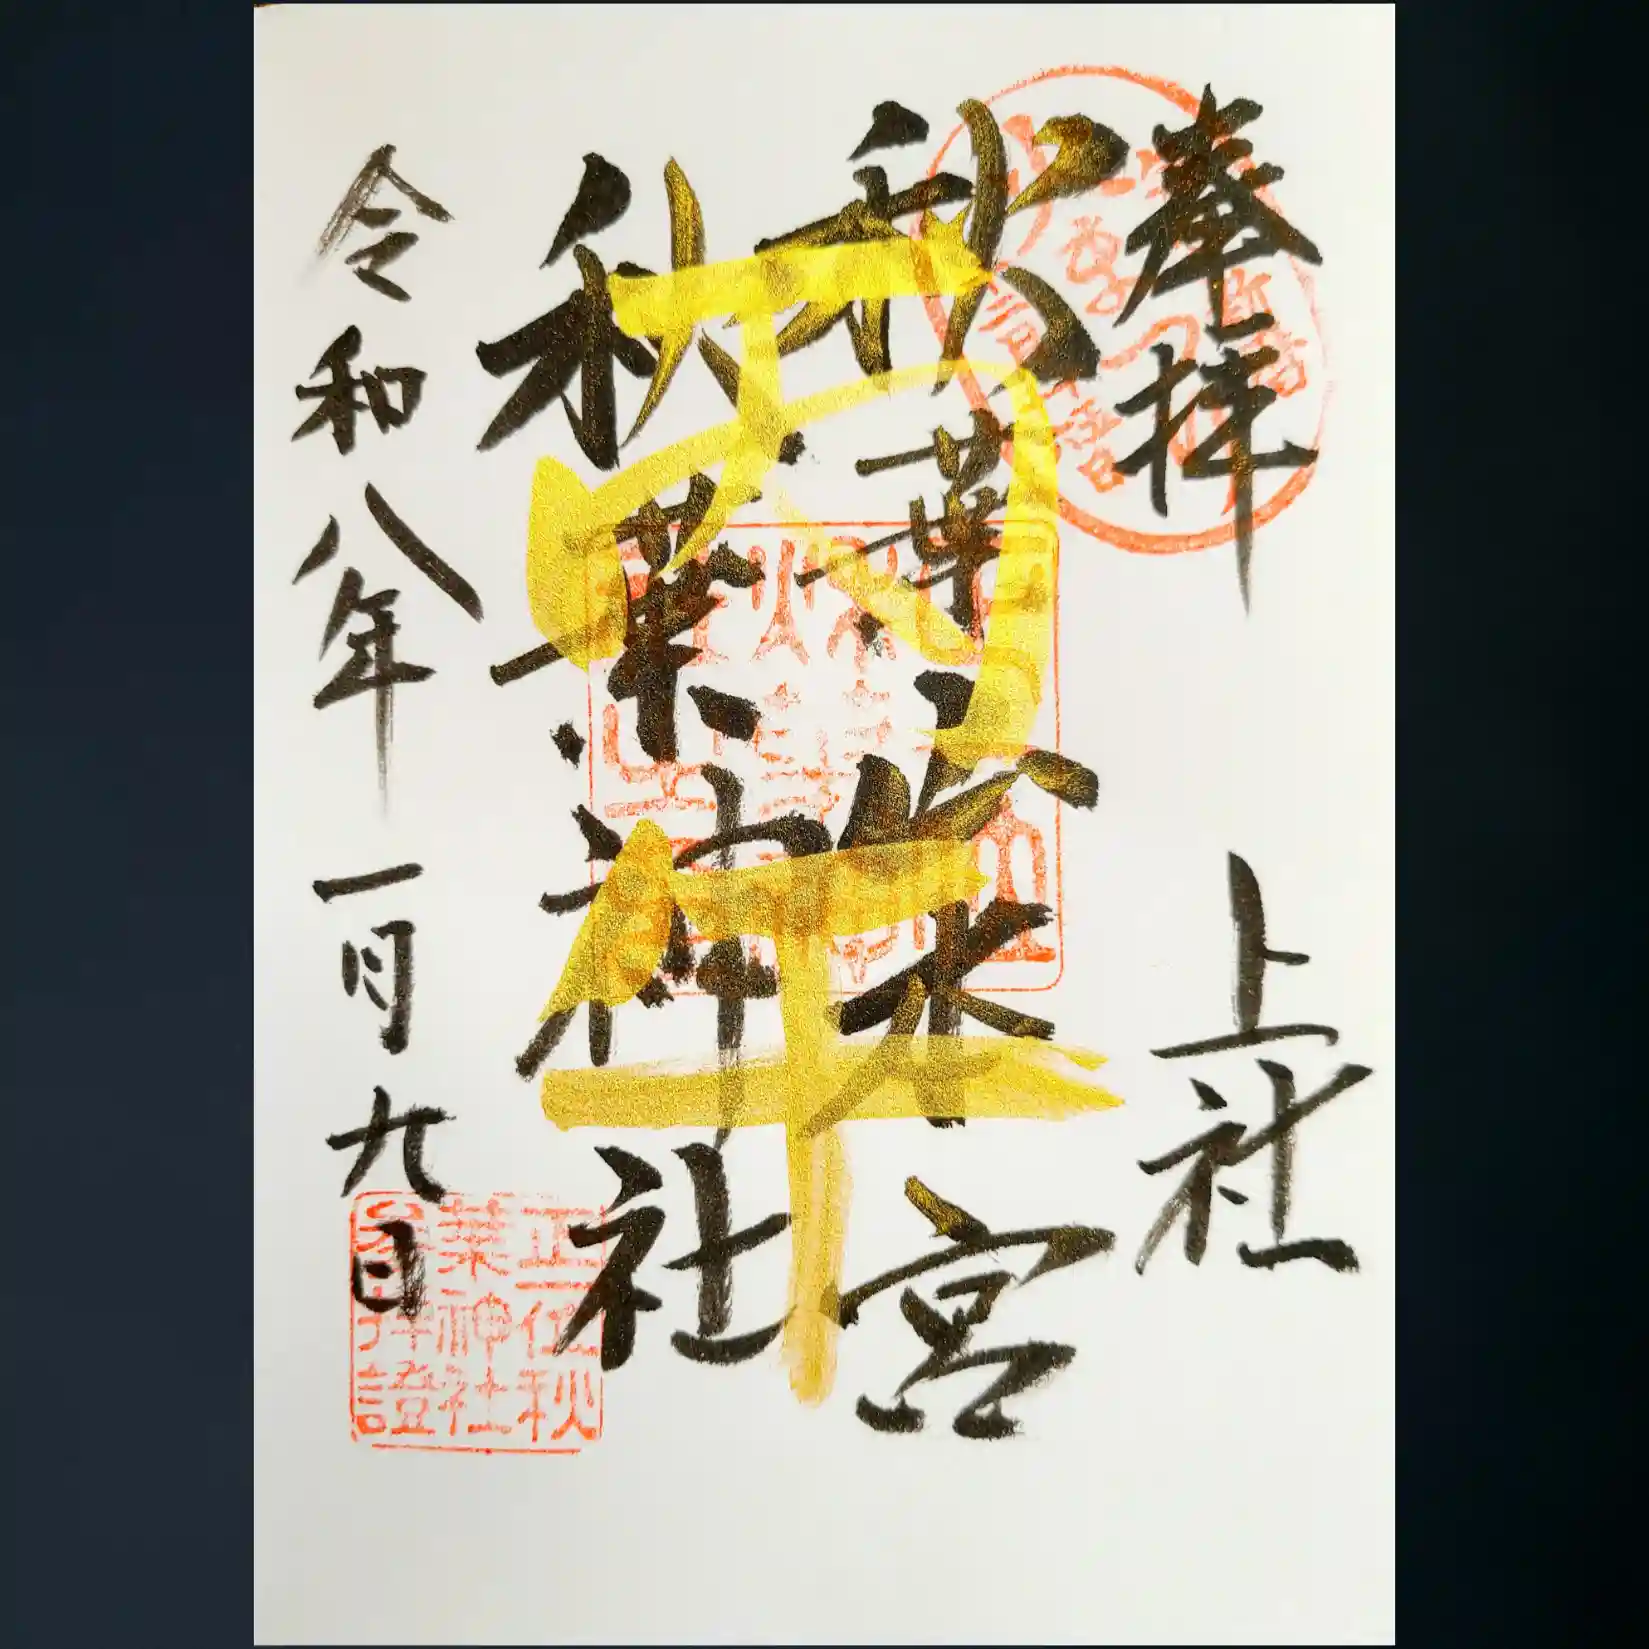 奉拝
上社
秋葉山本宮
秋葉神社
丙午
令和八年一月九日
正一位秋
葉神社
参拝證